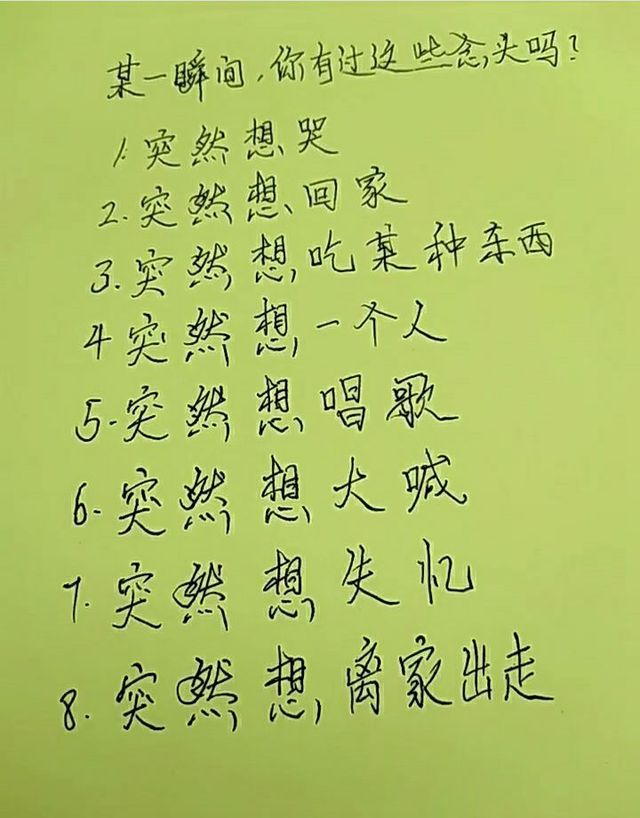 某一瞬间,你有过这些念头吗?
1.突然想哭
2.突然想回家
3.突然想吃某种东西
4突然想一个人
5.突然想唱歌
6.突然想大喊
7.突然想失忆
8.突然想离家出走